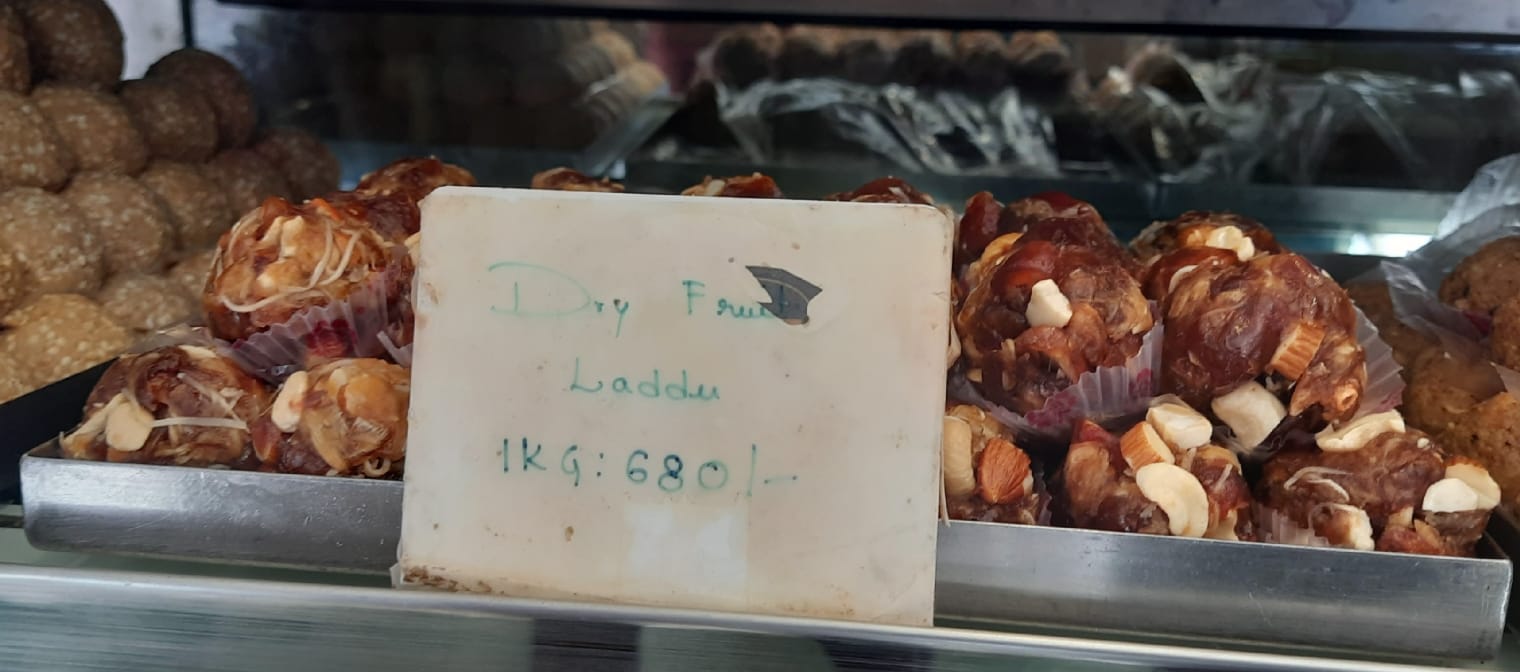 Dry Fruit
Laddu
1KG: 680/-